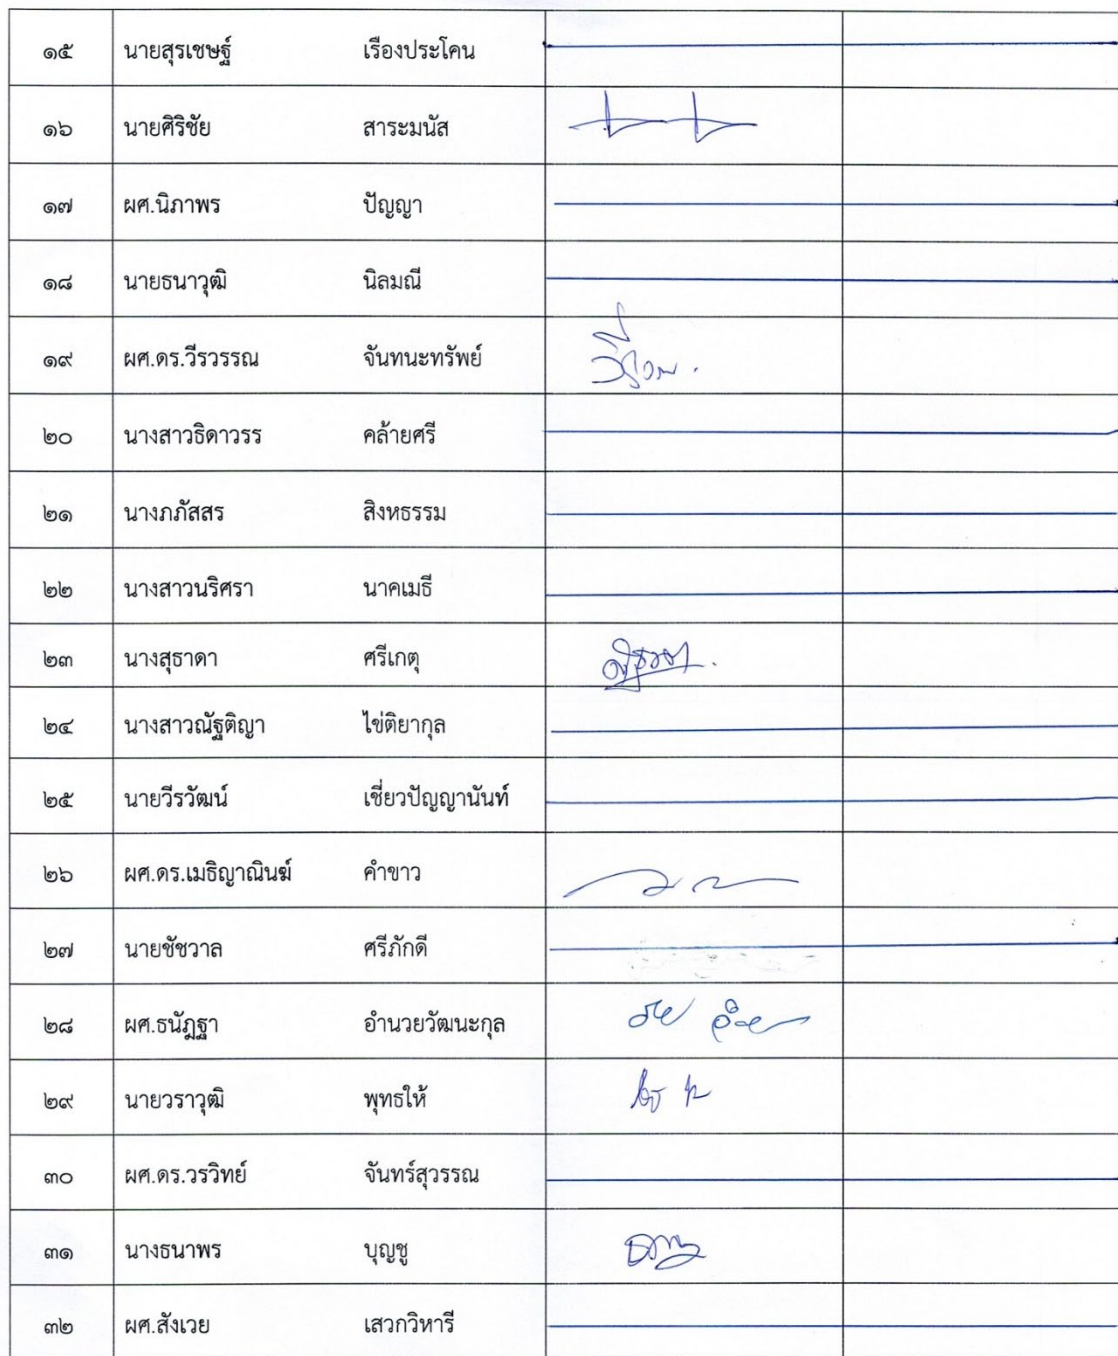 ๑๕ นายสุรเชษฐ์ เรืองประโคน
๑๖ นายศิริชัย สาระมนัส
๑๗ ผศ.นิภาพร ปัญญา
๑๘ นายธนาวุฒิ นิลมณี
๑๙ ผศ.ดร.วีรวรรณ จันทนะทรัพย์
๒๐ นางสาวธิดาวรร คล้ายศรี
๒๑ นางภภัสสร สิงหธรรม
๒๒ นางสาวนริศรา นาคเมธี
๒๓ นางสุธาดา ศรีเกตุ
๒๔ นางสาวณัฐติญา ไข่ติยากุล
๒๕ นายวีรวัฒน์ เชี่ยวปัญญานันท์
๒๖ ผศ.ดร.เมธิญาณินฆ์ คำขาว
๒๗ นายชัชวาล ศรีภักดี
๒๘ ผศ.ธนัฎฐา อำนวยวัฒนะกุล
๒๙ นายวราวุฒิ พุทธให้
๓๐ ผศ.ดร.วรวิทย์ จันทร์สุวรรณ
๓๑ นางธนาพร บุญชู
๓๒ ผศ.สังเวย เสวกวิหารี